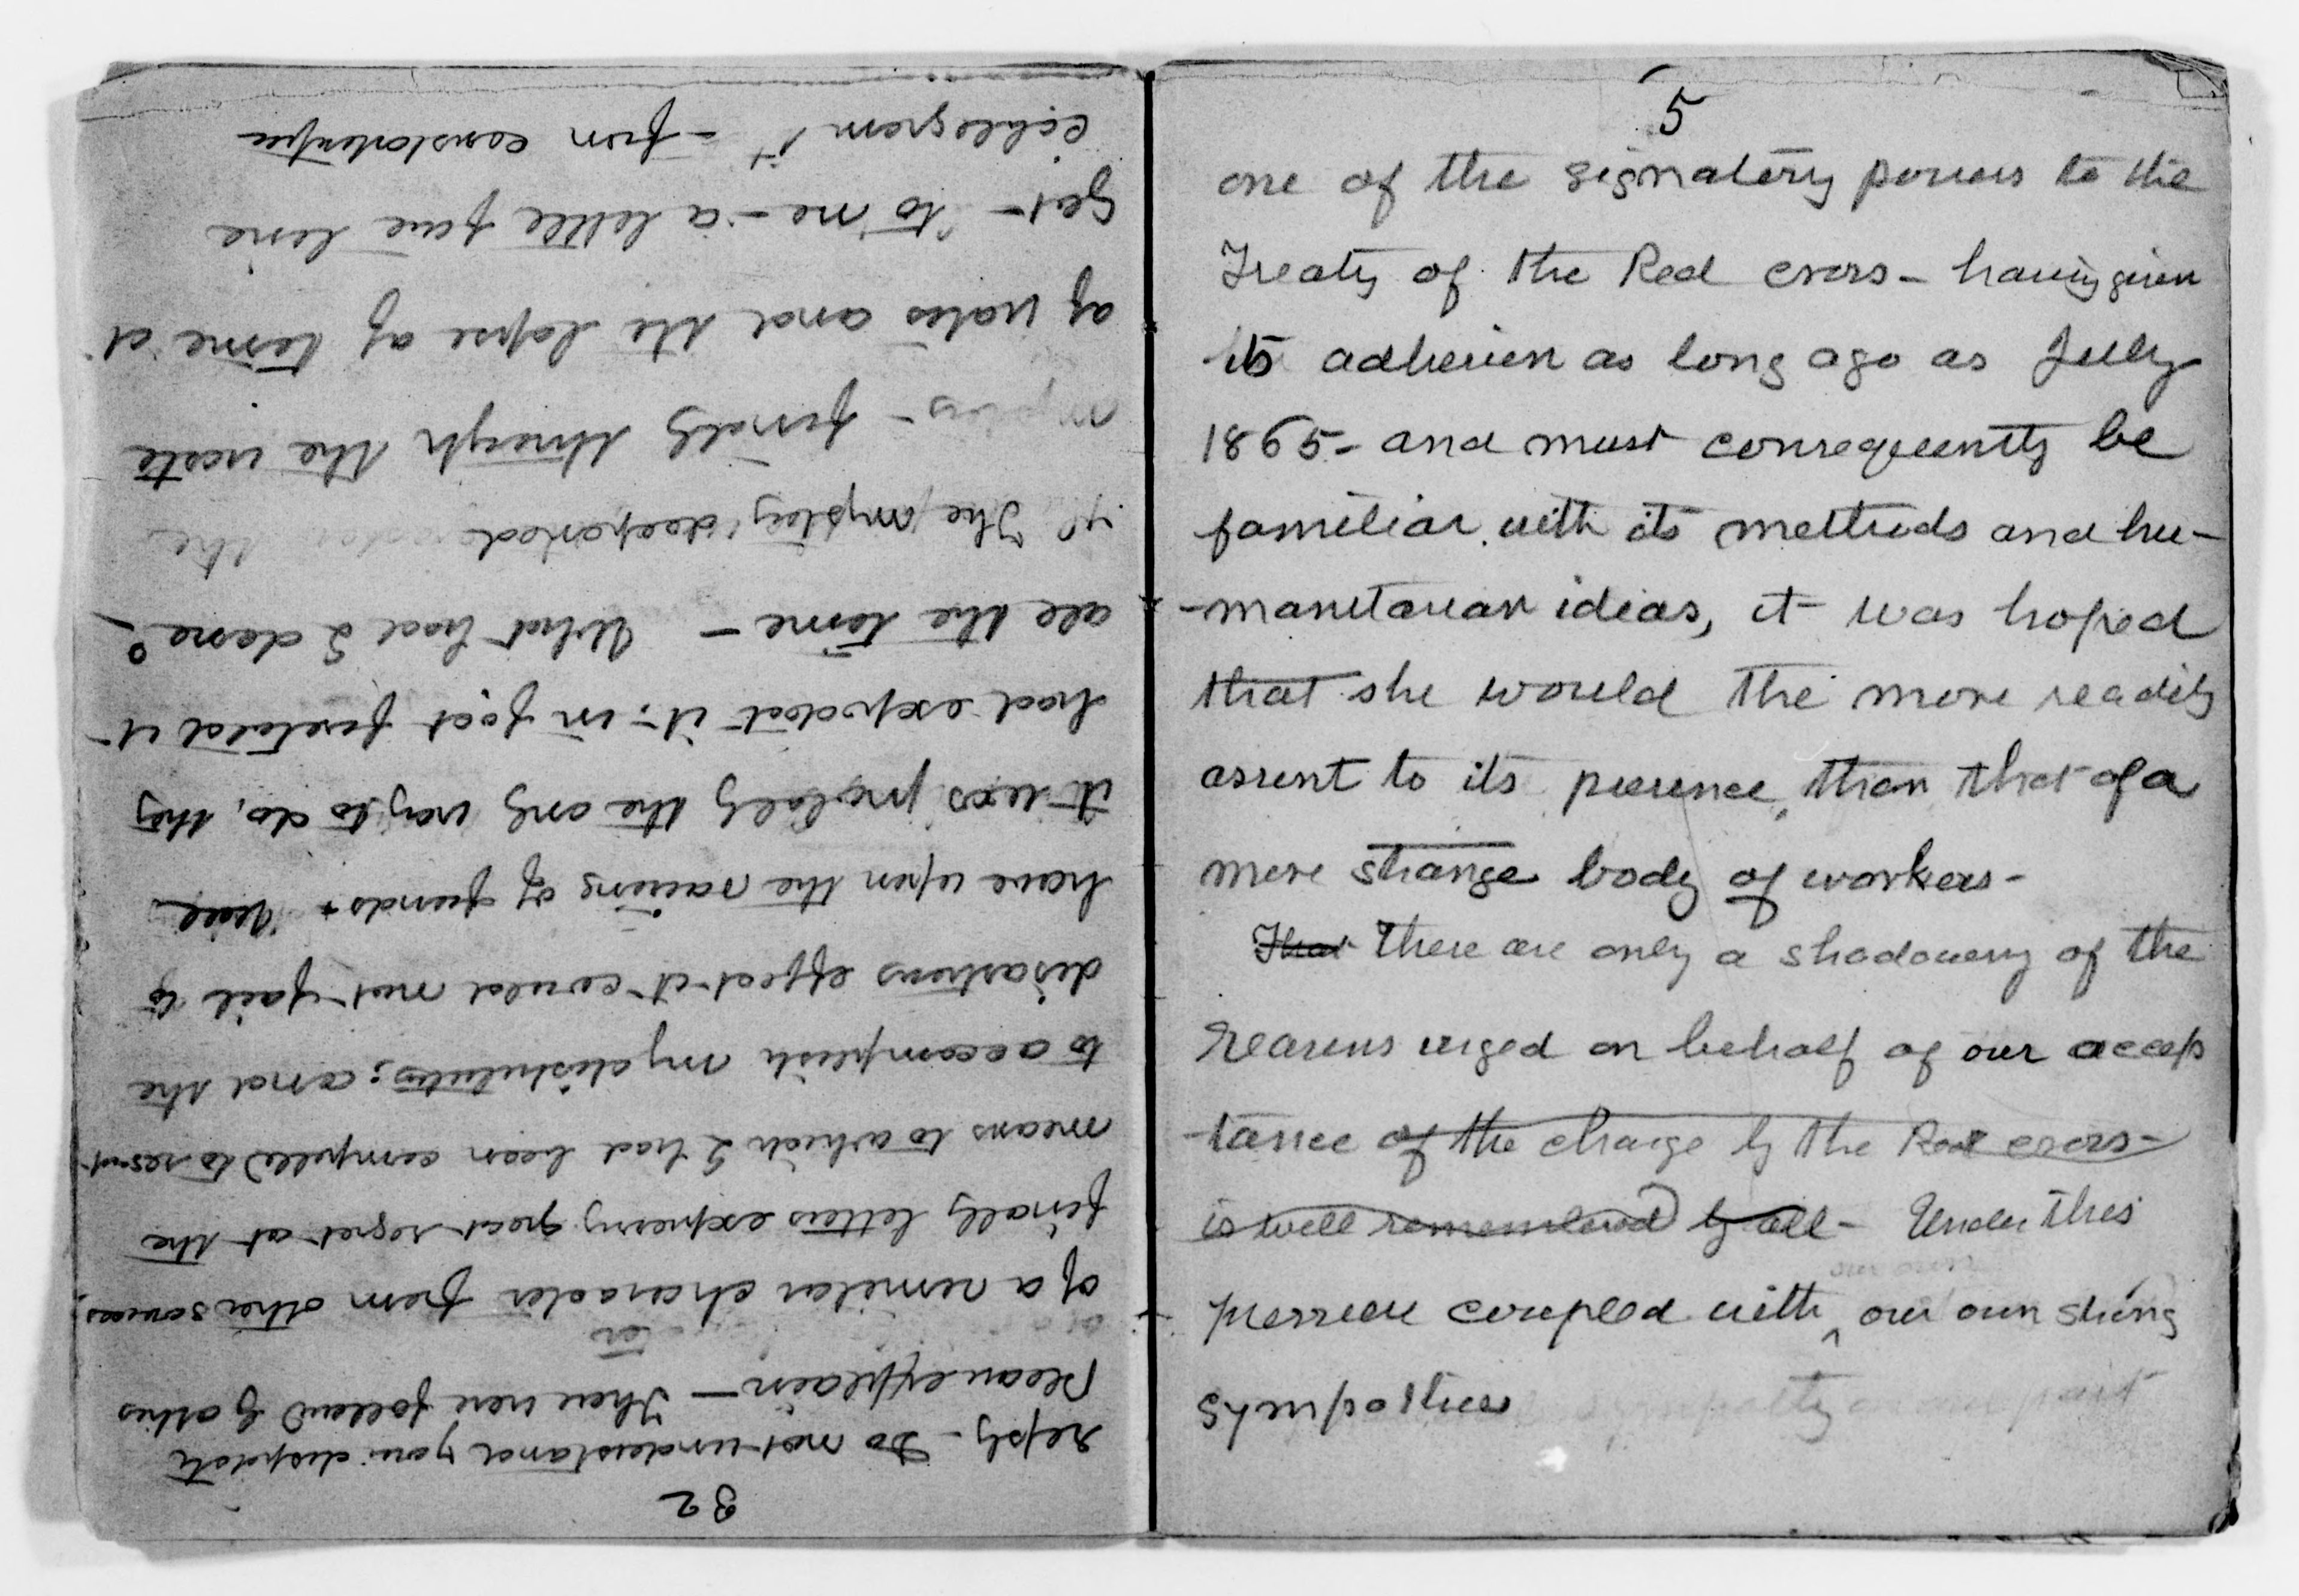 5
one of the signatory powers to the
Treaty of the Red cross - having given
its adhesion as long ago as July
1865 - and must consequently be
familiar with its methods and hu-
-manitarian ideas, it was hoped
that she would the more readily
assent to its presence, than that of a
more strange body of workers -
That There are only a shadowing of the
reasons urged on behalf of our accep
tance of the charge by the Red cross -
is well remembered by all - Under this
pressure coupled with our own strong
sympathies
32
reply - Do not understand your dispatch
Please explain - These were followed by others
of a similar character from other sources,
finally letters expressing great regret at the
means to which I had been compelled to resort
to accomplish my distribution; and the
disastrous effect it could not fail to
have upon the raising of funds +
it was probably the only way to do, they
had expected it; in fact foretold it -
all the time - What had I done?
if The mystery deepened the
mystery - finally through the waste
of waters and the lapse of time it
got to me - a little five line
cablegram - from constantinople